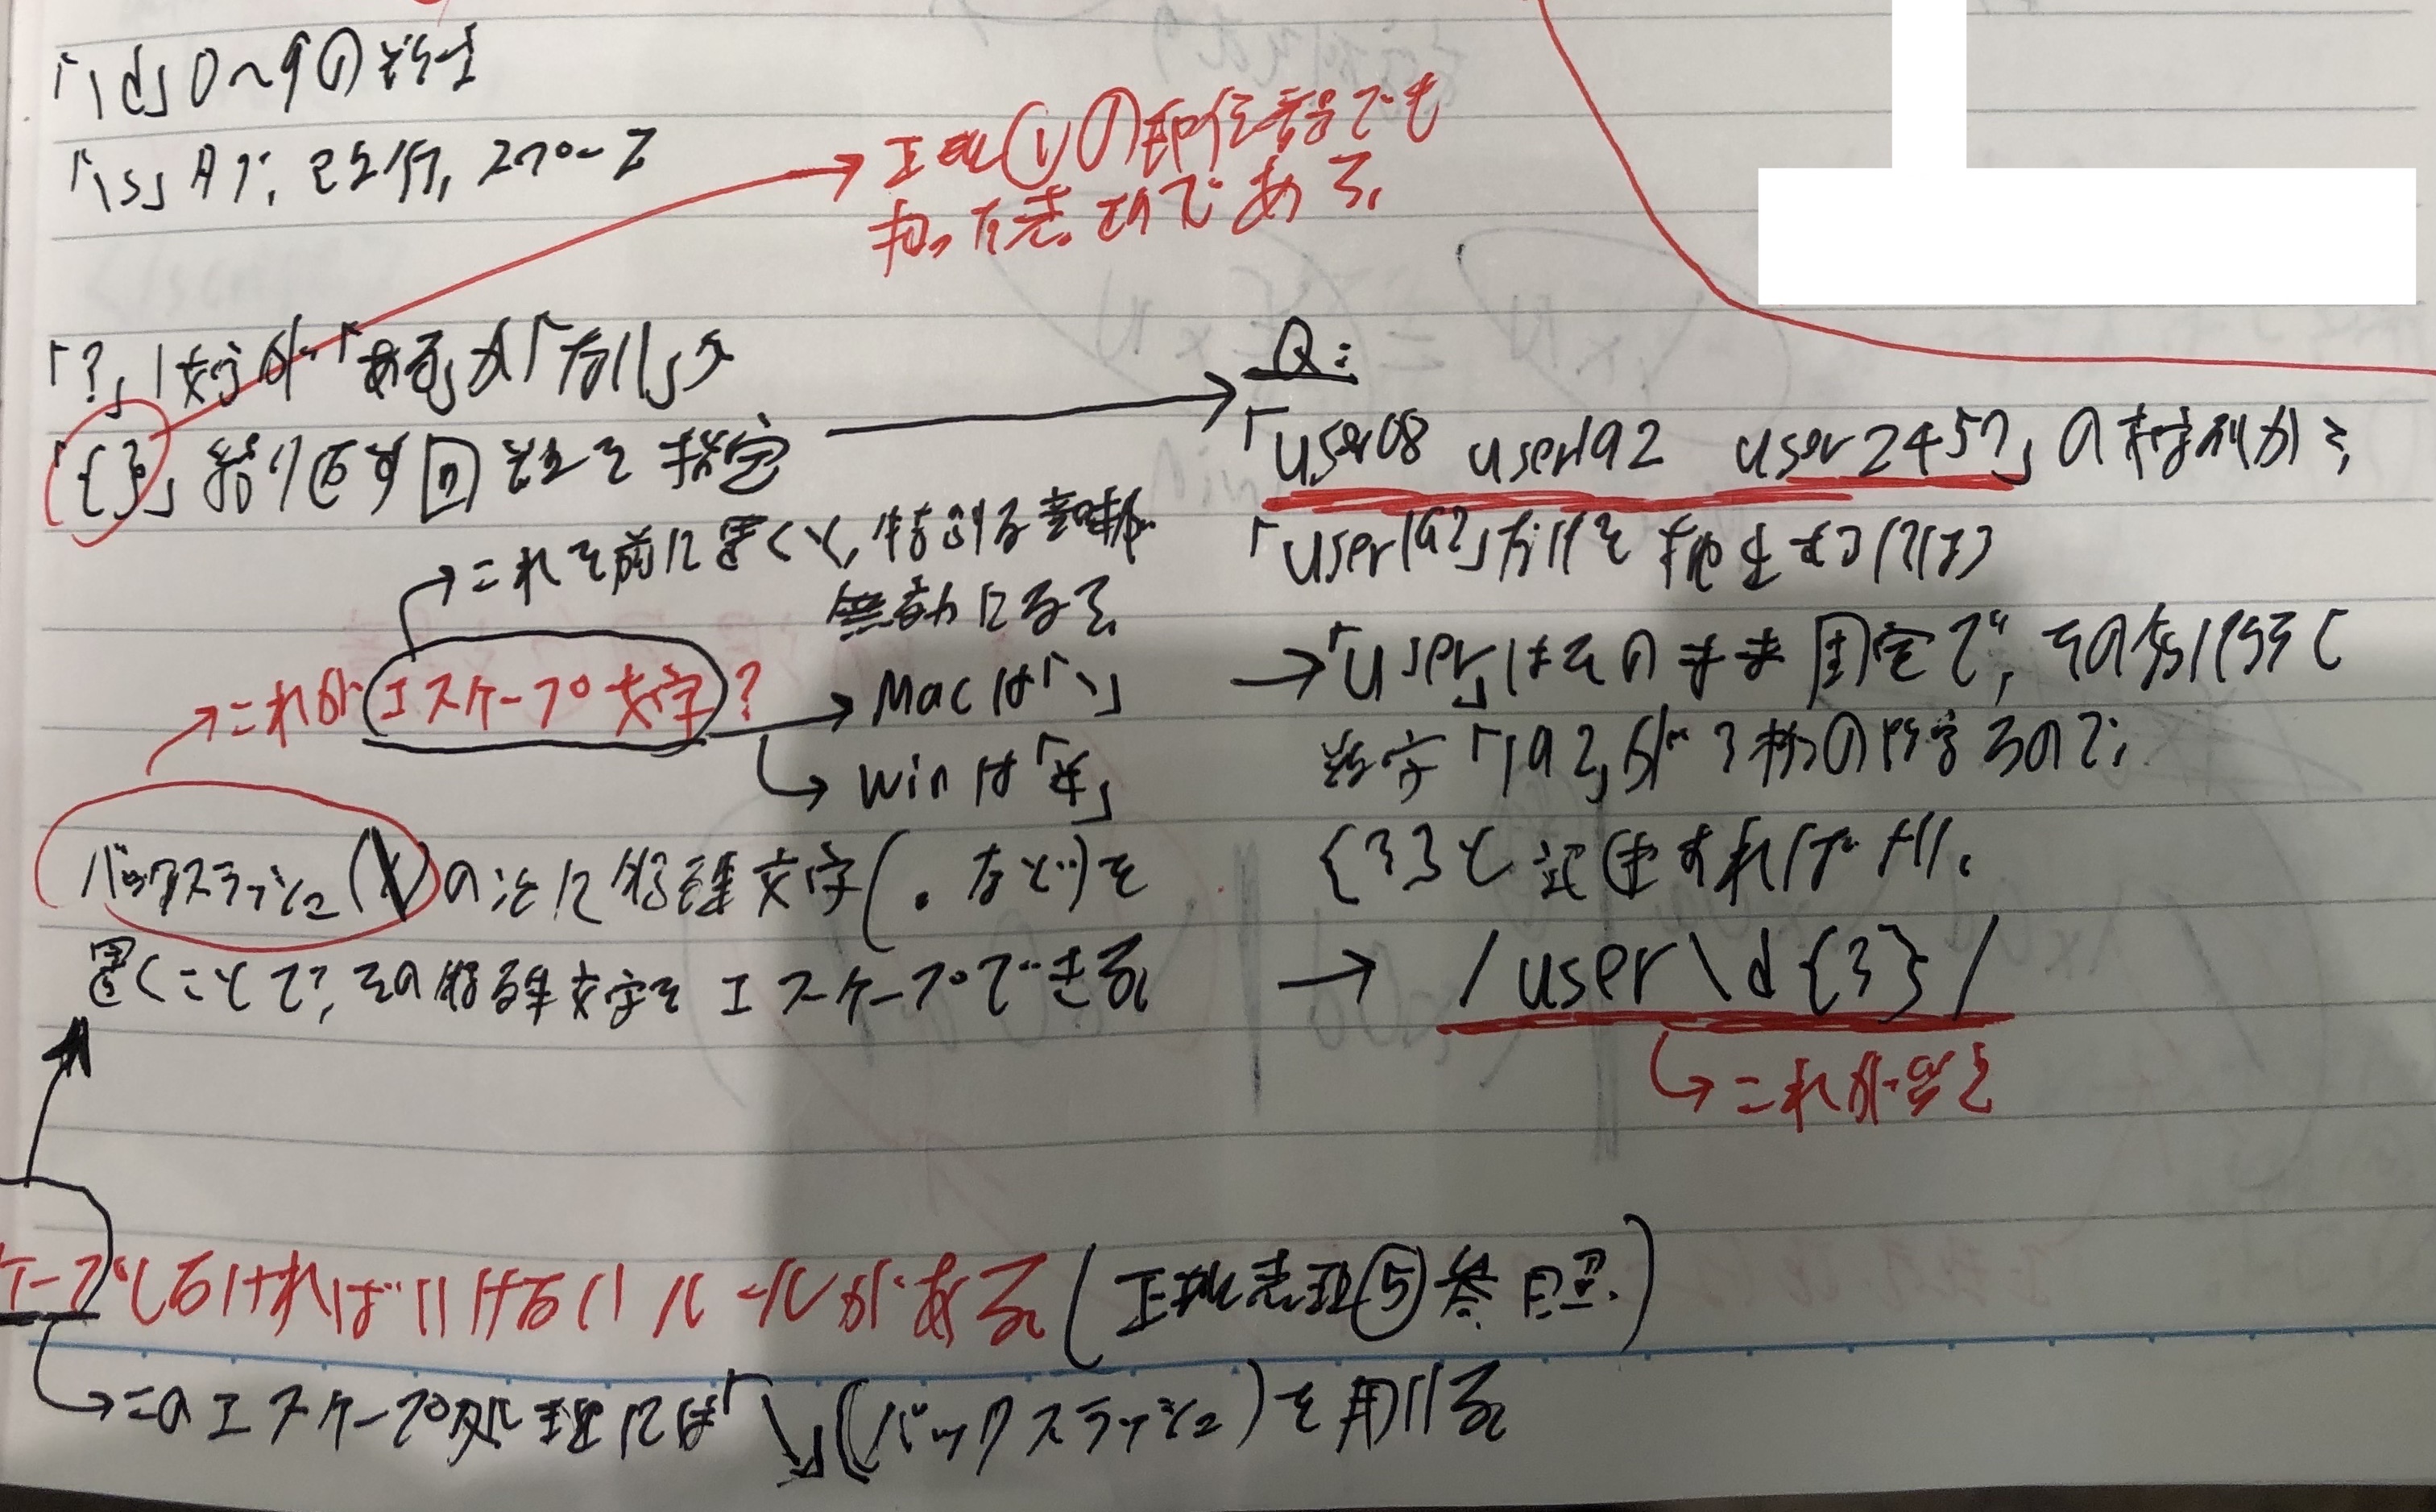 「\d」0~9の数値
「\s」タブ,改行,スペース
正規①の郵便番号でも
「?」1文字が「ある」か「ない」か
「{}」繰り返す回数を指定
これを前に置くと,特別な意味が
無効になる。
これがエスケープ文字?
Macは「\」
Winは「¥」
バックスラッシュ(\)の次に特殊文字(.など)を
置くことで,その特殊文字をエスケープできる。
Q:
「user08 user192 user2457」の文字列から
「user192」だけを抽出するには
「user」はそのまま固定で,その後に続く
数字「192」が3桁の
{3}と記述すればいい。
/user\d{3}/
これが答え
ープしなければいけないルールがある。(正規表現⑤参照.)
このエスケープ処理には「\」(バックスラッシュ)を用いる。